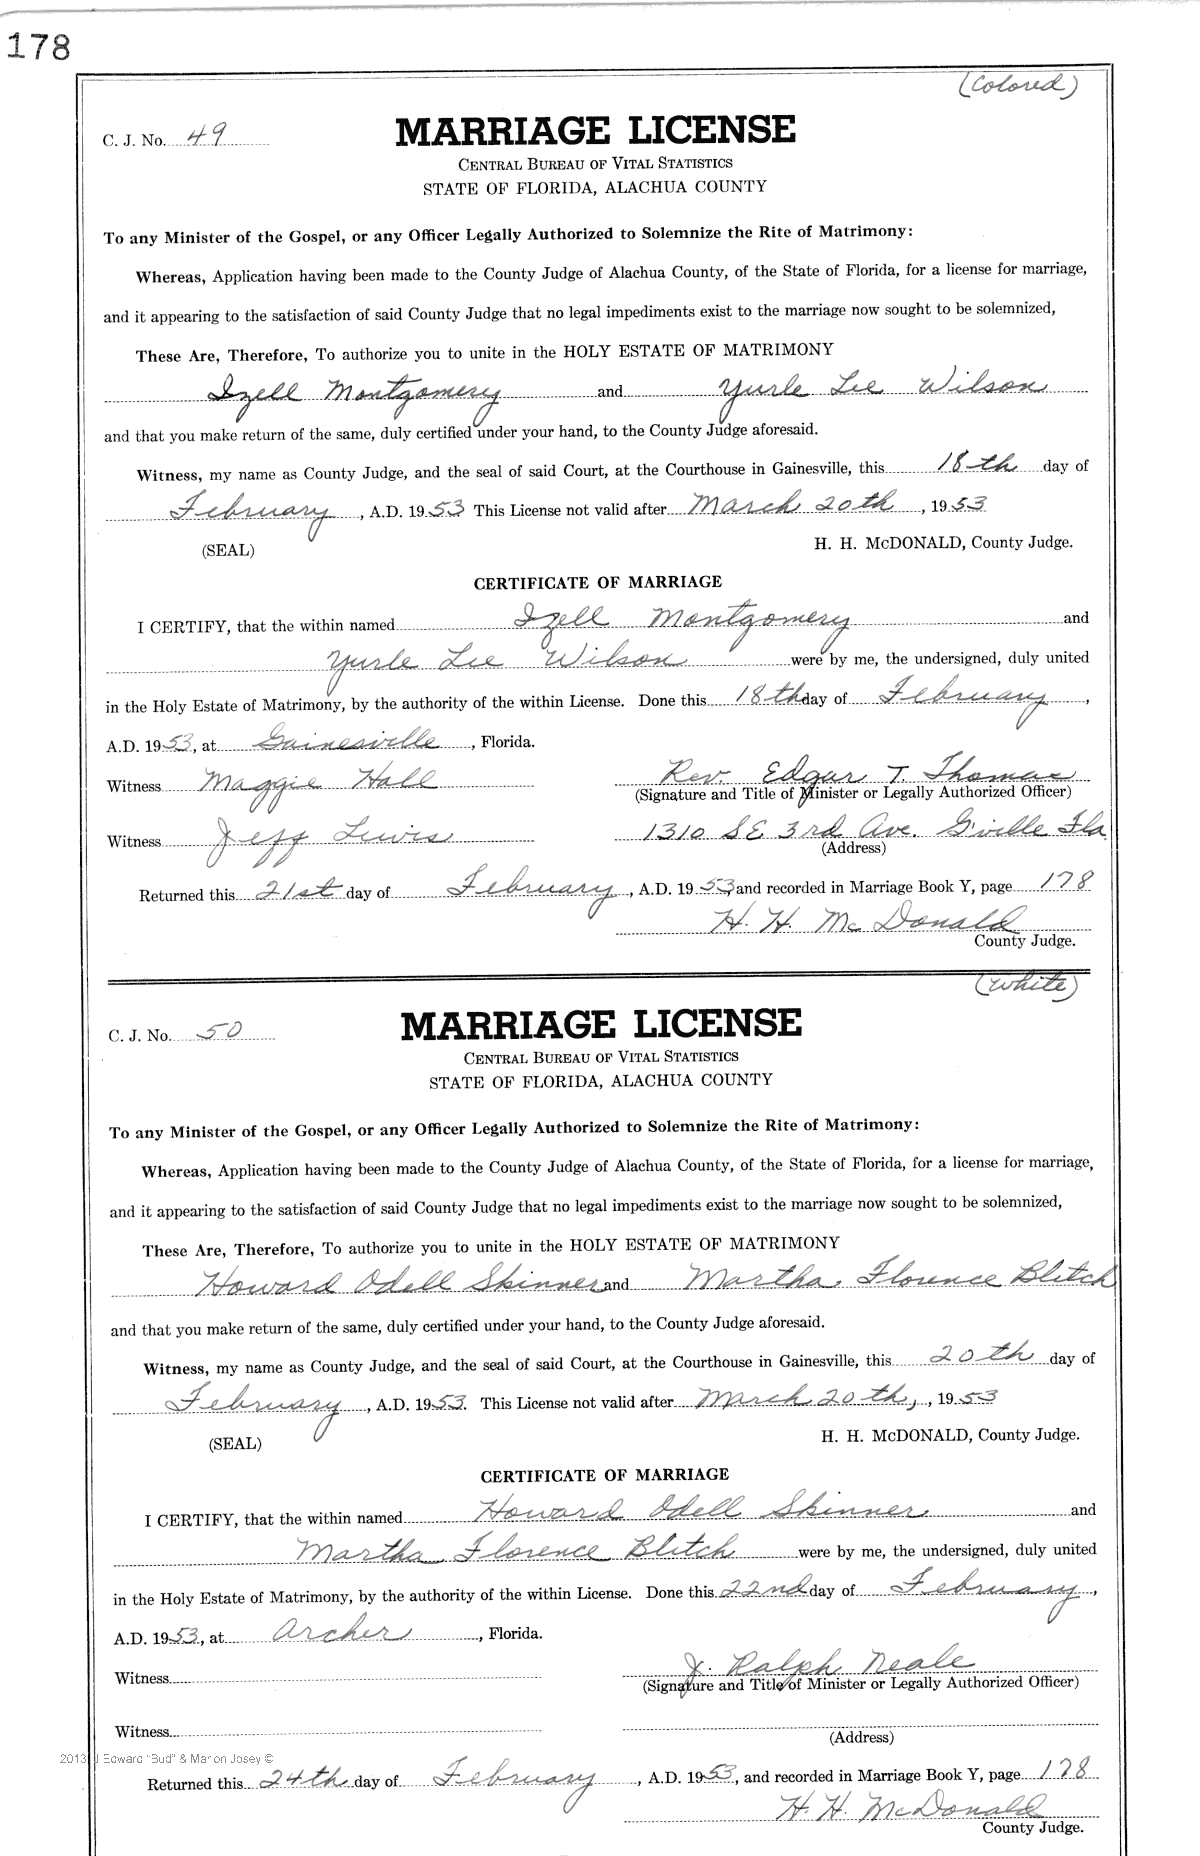 178
(Colored)
C. J. No. 49
MARRIAGE LICENSE
CENTRAL BUREAU OF VITAL STATISTICS
STATE OF FLORIDA, ALACHUA COUNTY
To any Minister of the Gospel, or any Officer Legally Authorized to Solemnize the Rite of Matrimony:
Whereas, Application having been made to the County Judge of Alachua County, of the State of Florida, for a license for marriage,
and it appearing to the satisfaction of said County Judge that no legal impediments exist to the marriage now sought to be solemnized,
These Are, Therefore, To authorize you to unite in the HOLY ESTATE OF MATRIMONY
Izell Montgomery and Yurle Lee Wilson
and that you make return of the same, duly certified under your hand, to the County Judge aforesaid.
Witness, my name as County Judge, and the seal of said Court, at the Courthouse in Gainesville, this 18th day of
February, A.D. 1953 This License not valid after March 20th, 1953
(SEAL) H. H. McDONALD, County Judge.
CERTIFICATE OF MARRIAGE
I CERTIFY, that the within named Izell Montgomery and
Yurle Lee Wilson were by me, the undersigned, duly united
in the Holy Estate of Matrimony, by the authority of the within License. Done this 18th day of February,
A.D. 1953, at Gainesville, Florida.
Witness Maggie Hall Rev. Edgar T. Thomas
(Signature and Title of Minister or Legally Authorized Officer)
Witness Jeff Lewis 1310 SE 3rd Ave. G'ville Fla
(Address)
Returned this 21st day of February, A.D. 1953, and recorded in Marriage Book Y, page 178
H. H. McDonald
County Judge.
(White)
C. J. No. 50
MARRIAGE LICENSE
CENTRAL BUREAU OF VITAL STATISTICS
STATE OF FLORIDA, ALACHUA COUNTY
To any Minister of the Gospel, or any Officer Legally Authorized to Solemnize the Rite of Matrimony:
Whereas, Application having been made to the County Judge of Alachua County, of the State of Florida, for a license for marriage,
and it appearing to the satisfaction of said County Judge that no legal impediments exist to the marriage now sought to be solemnized,
These Are, Therefore, To authorize you to unite in the HOLY ESTATE OF MATRIMONY
Howard Odell Skinner and Martha Florence Blitch
and that you make return of the same, duly certified under your hand, to the County Judge aforesaid.
Witness, my name as County Judge, and the seal of said Court, at the Courthouse in Gainesville, this 20th day of
February, A.D. 1953. This License not valid after March 20th, 1953
(SEAL) H. H. McDONALD, County Judge.
CERTIFICATE OF MARRIAGE
I CERTIFY, that the within named Howard Odell Skinner and
Martha Florence Blitch were by me, the undersigned, duly united
in the Holy Estate of Matrimony, by the authority of the within License. Done this 22nd day of February,
A.D. 1953, at Archer, Florida.
Witness J. Ralph Neale
(Signature and Title of Minister or Legally Authorized Officer)
Witness
(Address)
2013 J Edward "Bud" & Marion Josey ©
Returned this 24th day of February, A.D. 1953, and recorded in Marriage Book Y, page 178
H. H. McDonald
County Judge.